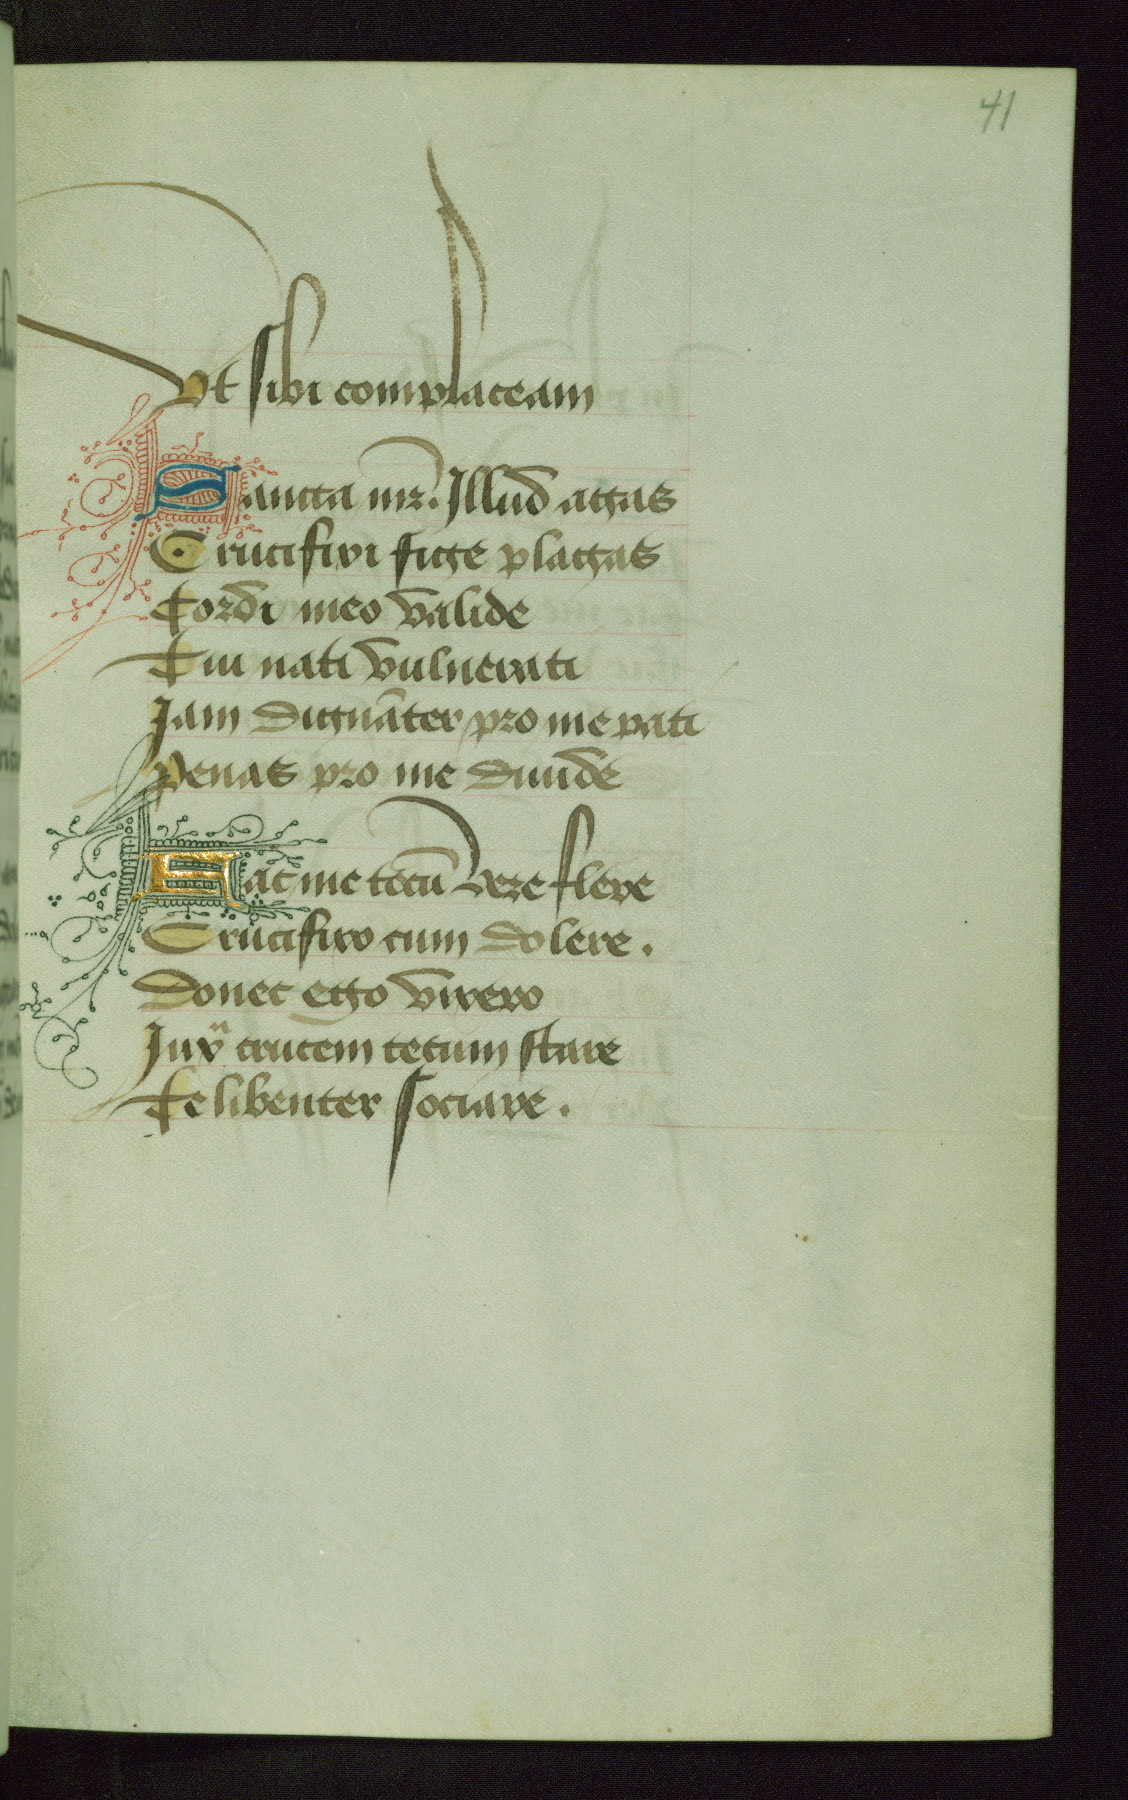 41
Ut sibi complaceam
Sancta mr̄. Illud agas
Crucifixi fige plagas
Cordi meo valide
Tui nati vulnerati
Jam dignāter pro me pati
Penas pro me diuide
Fac me tecū vere flere
Crucifixo cum dolere.
Donec ego vixero
Juxᵃ crucem tecum stare
Te libenter sociare.